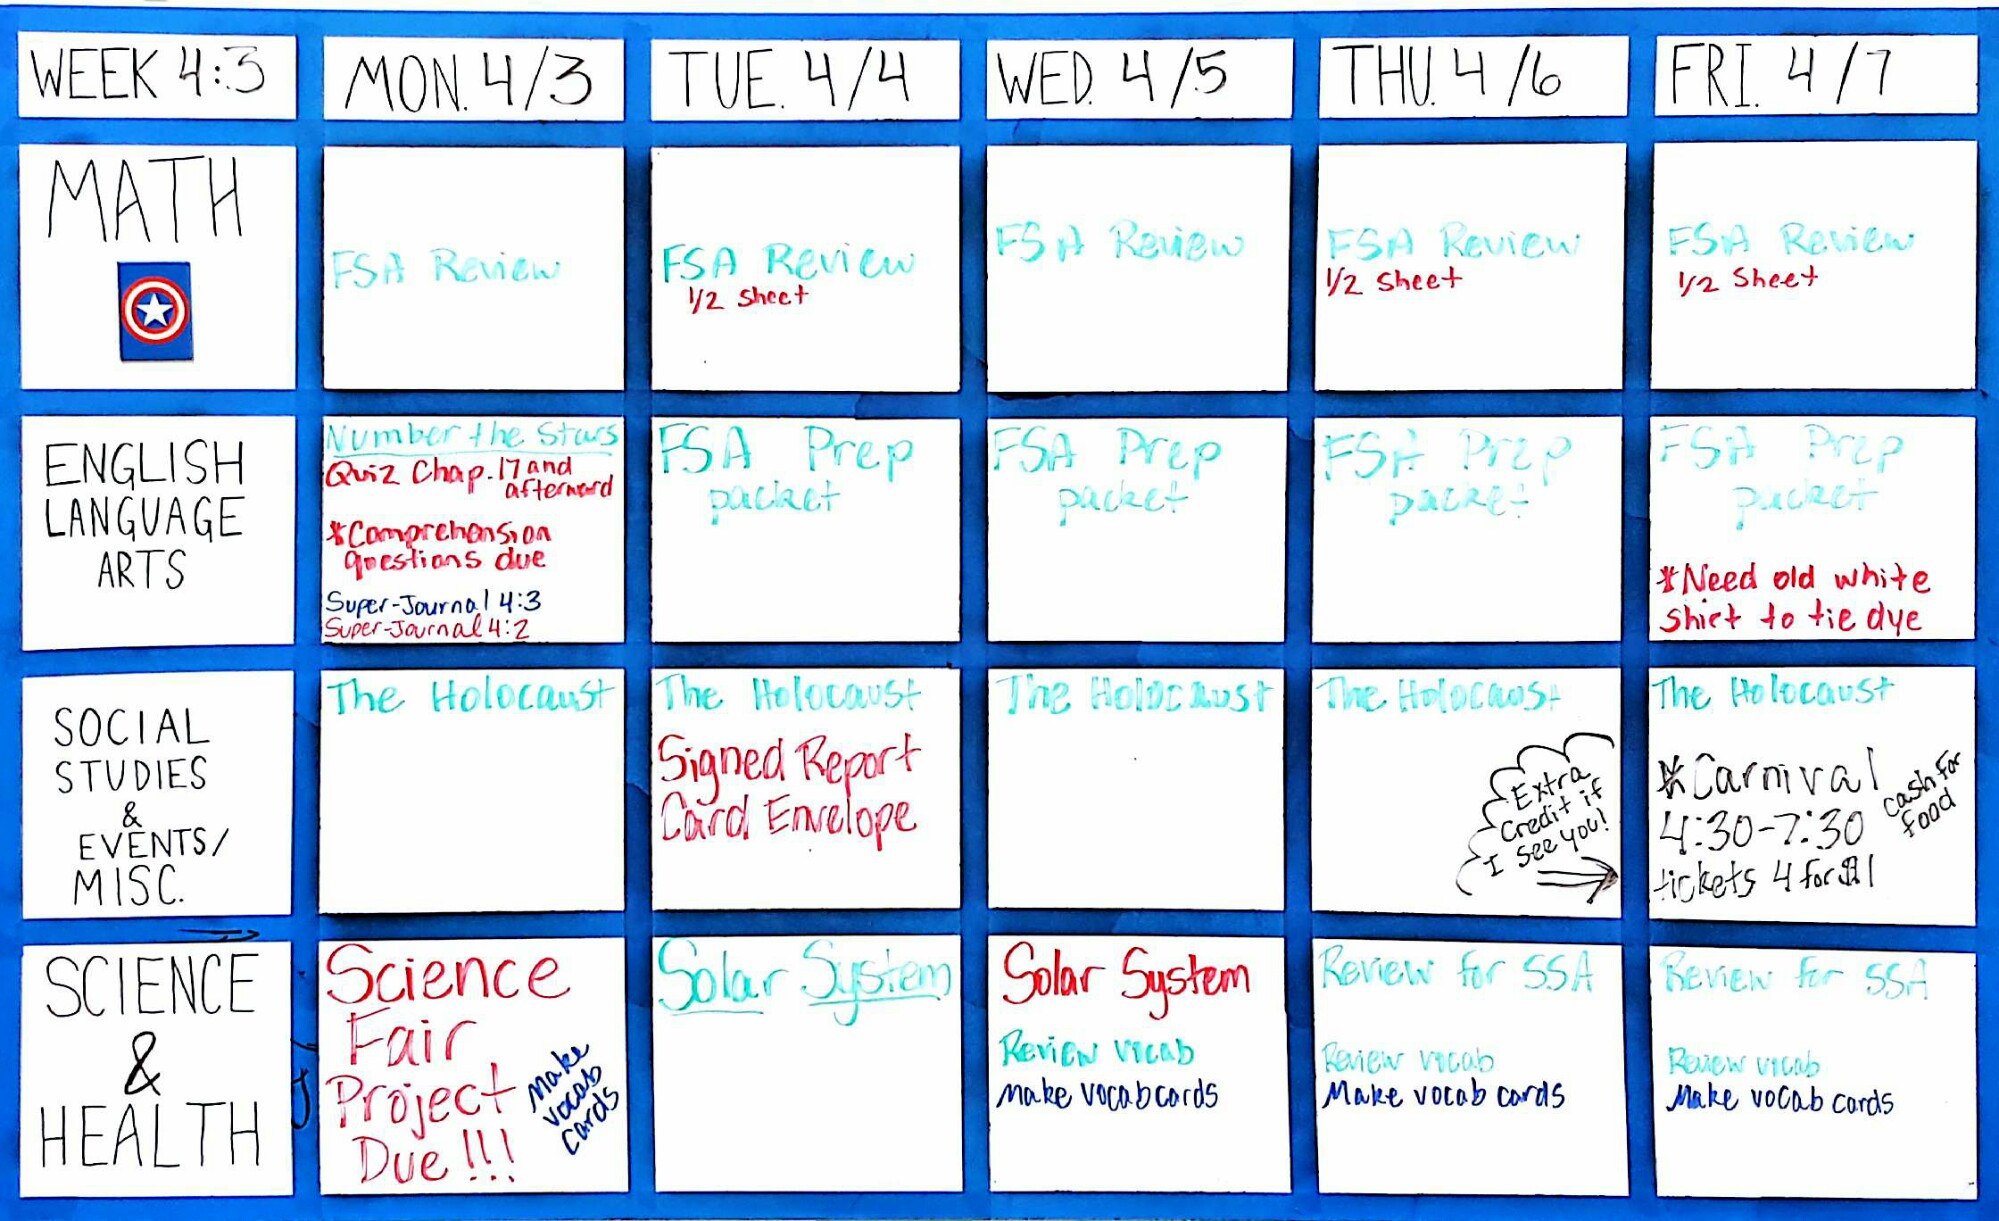 WEEK 4:3
MON. 4/3
TUE. 4/4
WED. 4/5
THU. 4/6
FRI. 4/7
MATH
FSA Review
FSA Review
1/2 sheet
FSA Review
FSA Review
1/2 sheet
FSA Review
1/2 sheet
ENGLISH
LANGUAGE
ARTS
Number the Stars
Quiz Chap. 17 and
afterward
*Comprehension
questions due
Super-Journal 4:3
Super-Journal 4:2
FSA Prep
packet
FSA Prep
packet
FSA Prep
packet
FSA Prep
packet
*Need old white
shirt to tie dye
SOCIAL
STUDIES
&
EVENTS/
MISC.
The Holocaust
The Holocaust
Signed Report
Card Envelope
The Holocaust
The Holocaust
Extra
Credit if
I see you!
The Holocaust
*Carnival
4:30-7:30
tickets 4 for $1
cash for
food
SCIENCE
&
HEALTH
Science
Fair
Project
Due!!!
Make
vocab
cards
Solar System
Solar System
Review vocab
Make vocab cards
Review for SSA
Review vocab
Make vocab cards
Review for SSA
Review vocab
Make vocab cards